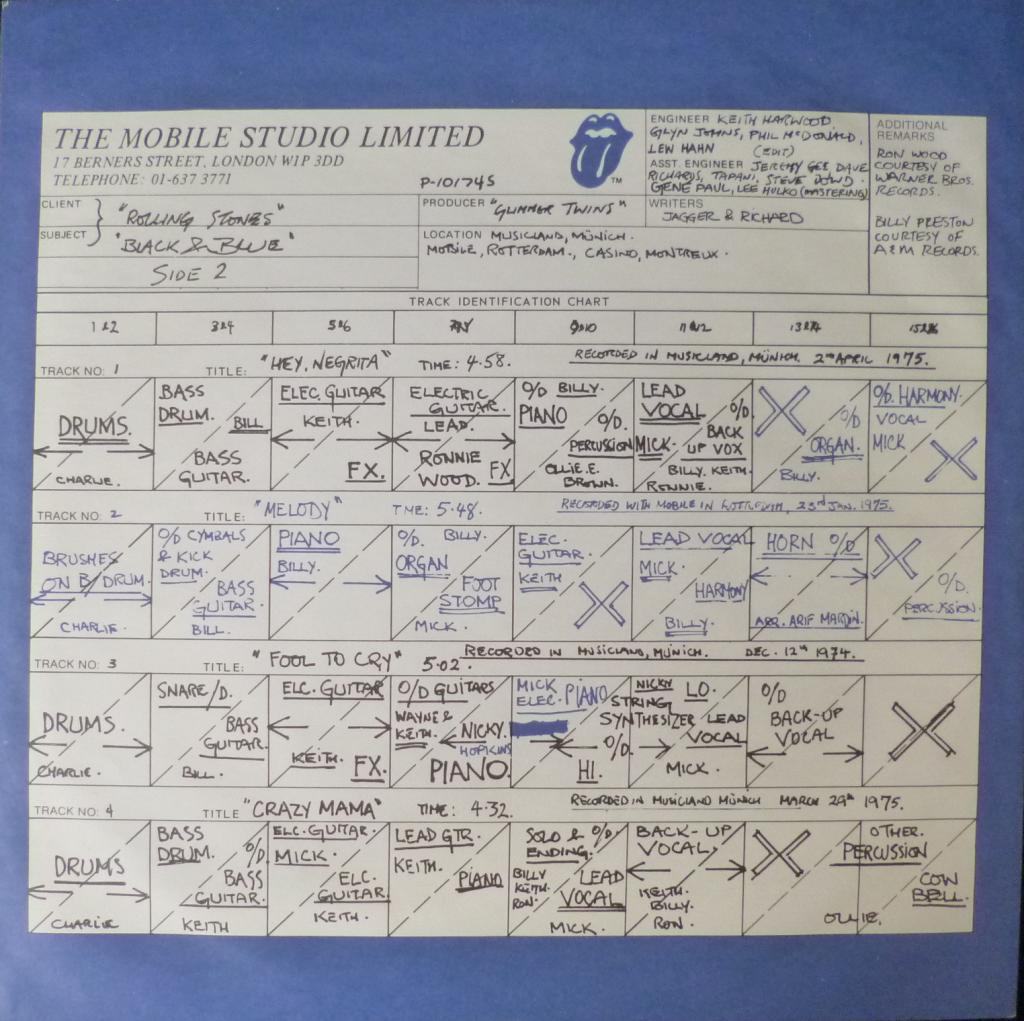 THE MOBILE STUDIO LIMITED
17 BERNERS STREET, LONDON W1P 3DD
TELEPHONE: 01-637 3771
P-10174S
TM
ENGINEER KEITH HARWOOD
GLYN JOHNS, PHIL McDONALD,
LEW HAHN (EDIT)
ASST. ENGINEER JEREMY GEE DAVE
RICHARDS, TAPANI, STEVE DOWD.
GENE PAUL, LEE HULKO (MASTERING)
ADDITIONAL
REMARKS
RON WOOD
COURTESY OF
WARNER BROS.
RECORDS.
BILLY PRESTON
COURTESY OF
A&M RECORDS.
CLIENT } "ROLLING STONES"
SUBJECT "BLACK & BLUE"
SIDE 2
PRODUCER "GLIMMER TWINS"
WRITERS
JAGGER & RICHARD
LOCATION MUSICLAND, MÜNICH.
MOBILE, ROTTERDAM., CASINO, MONTREUX.
TRACK IDENTIFICATION CHART
1 & 2 3&4 5&6 7&8 9&10 11&12 13&14 15&16
TRACK NO: 1 TITLE: "HEY, NEGRITA" TIME: 4.58. RECORDED IN MUSICLAND, MÜNICH. 2nd APRIL 1975.
DRUMS.
CHARLIE.
BASS
DRUM.
BILL
BASS
GUITAR.
ELEC. GUITAR
KEITH.
FX.
ELECTRIC
GUITAR.
LEAD.
RONNIE
WOOD. FX
O/D BILLY.
PIANO O/D.
PERCUSSION
OLLIE. E.
BROWN.
LEAD
VOCAL O/D.
MICK. BACK
UP VOX
BILLY. KEITH.
RONNIE.
O/D
ORGAN.
BILLY.
O/D. HARMONY.
VOCAL
MICK
TRACK NO: 2 TITLE: "MELODY" TIME: 5.48. RECORDED WITH MOBILE IN ROTTERDAM, 23rd JAN. 1975.
BRUSHES
ON B/DRUM.
CHARLIE.
O/D CYMBALS
& KICK
DRUM.
BASS
GUITAR.
BILL.
PIANO
BILLY.
O/D. BILLY.
ORGAN
FOOT
STOMP
MICK.
ELEC.
GUITAR.
KEITH
LEAD VOCAL
MICK.
HARMONY
BILLY.
HORN O/D
ARR. ARIF MARDIN.
O/D.
PERCUSSION.
TRACK NO: 3 TITLE: "FOOL TO CRY" 5.02. RECORDED IN MUSICLAND, MÜNICH. DEC. 12th 1974.
DRUMS.
CHARLIE.
SNARE/D.
BASS
GUITAR.
BILL.
ELC. GUITAR
KEITH. FX.
O/D GUITARS
WAYNE &
KEITH. NICKY.
HOPKINS
PIANO.
MICK
ELEC. PIANO
O/D.
HI.
NICKY LO.
STRING
SYNTHESIZER LEAD
VOCAL
MICK.
O/D
BACK-UP
VOCAL
TRACK NO: 4 TITLE "CRAZY MAMA" TIME: 4.32. RECORDED IN MUSICLAND MÜNICH MARCH 29th 1975.
DRUMS
CHARLIE
BASS
DRUM. O/D
BASS
GUITAR.
KEITH
ELC. GUITAR.
MICK.
ELC.
GUITAR.
KEITH.
LEAD GTR.
KEITH.
PIANO
SOLO & O/D.
ENDING.
BILLY
KEITH.
RON.
LEAD
VOCAL
MICK.
BACK-UP
VOCAL.
KEITH.
BILLY.
RON.
OTHER.
PERCUSSION
COW
BELL.
OLLIE.